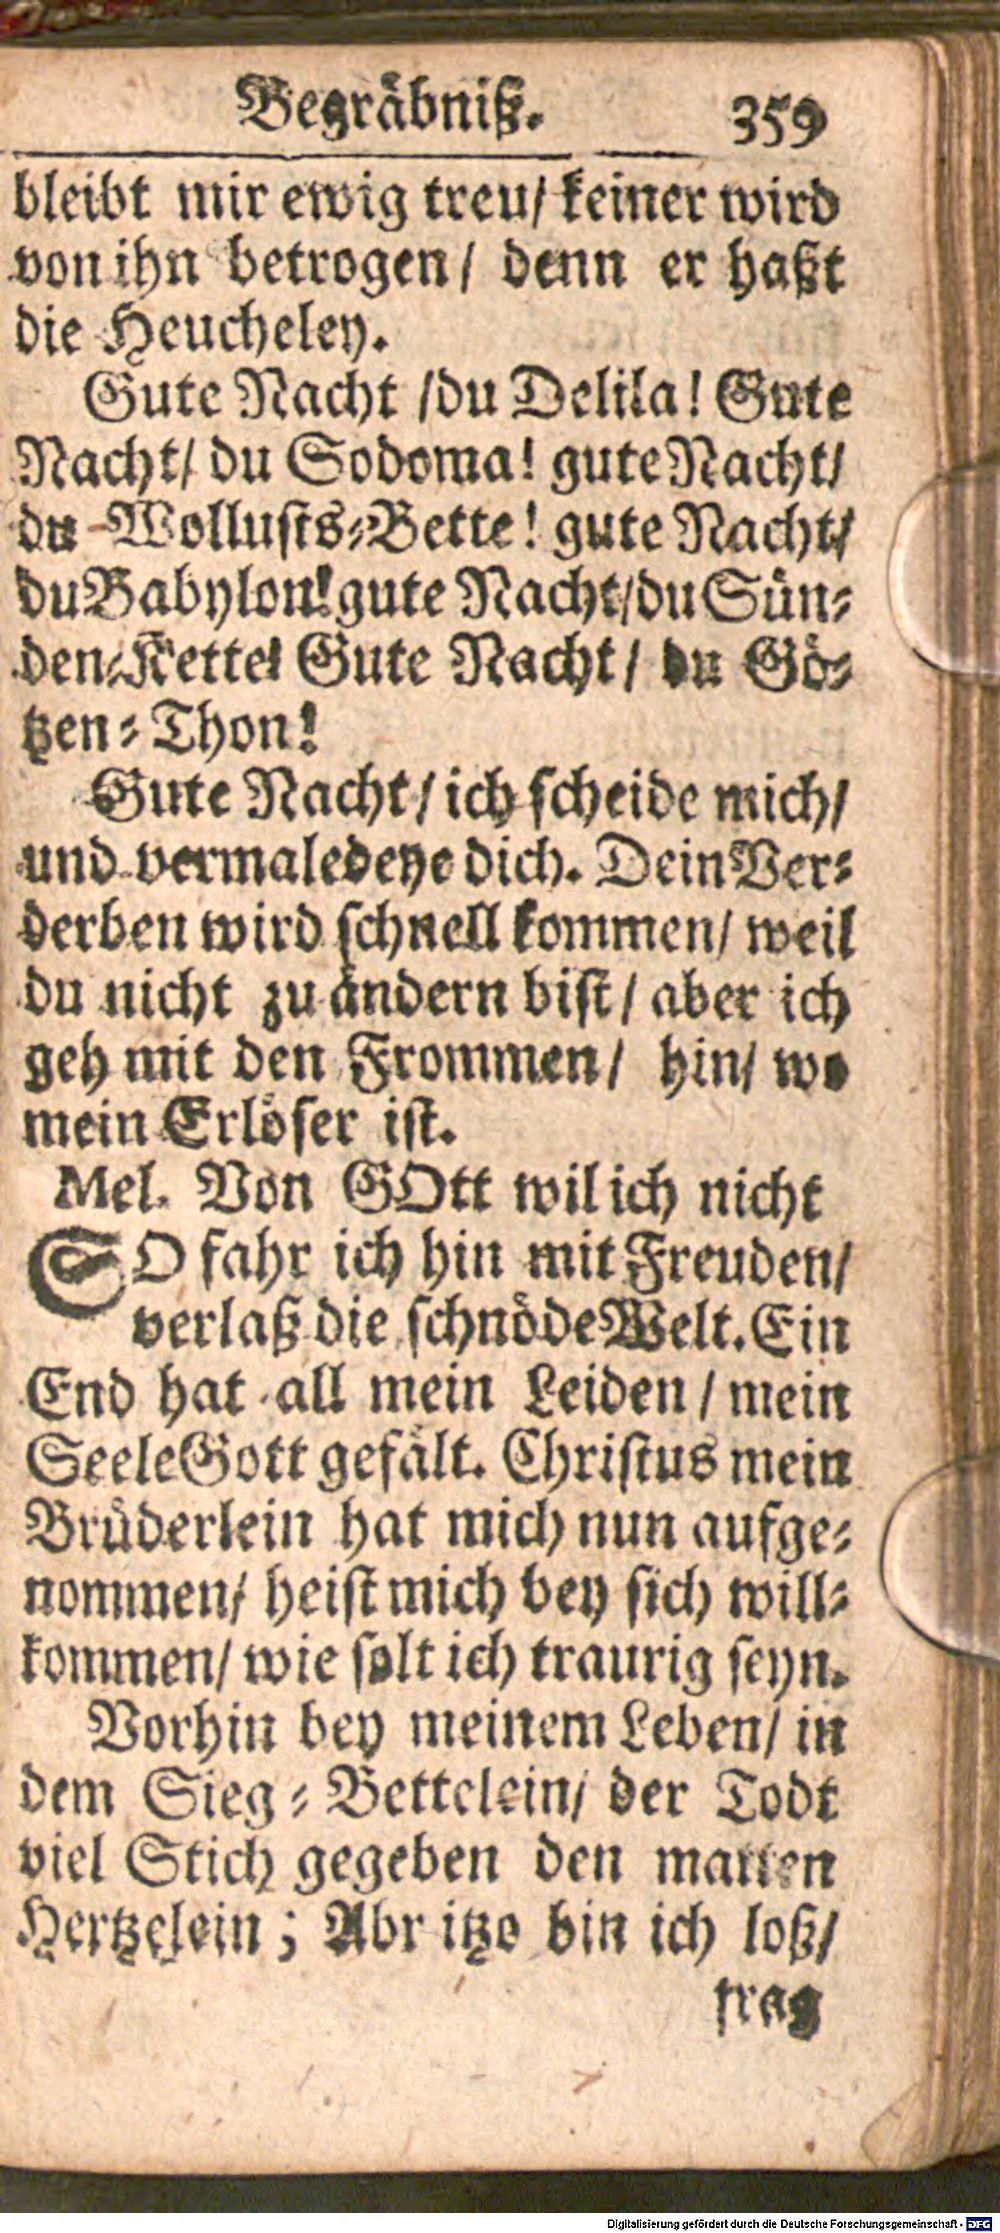 Begräbniß. 359
bleibt mir ewig treu/ keiner wird
von ihn betrogen/ denn er haßt
die Heucheley.
Gute Nacht /du Delila! Gute
Nacht/ du Sodoma! gute Nacht/
du Wollusts-Bette! gute Nacht/
du Babylon! gute Nacht/du Sün-
den-Kette! Gute Nacht/ du Gö-
tzen-Thon!
Gute Nacht/ ich scheide mich/
und vermaledeye dich. Dein Ver-
derben wird schnell kommen/ weil
du nicht zu ändern bist/ aber ich
geh mit den Frommen/ hin/ wo
mein Erlöser ist.
Mel. Von GOtt wil ich nicht
SO fahr ich hin mit Freuden/
verlaß die schnöde Welt. Ein
End hat all mein Leiden / mein
Seele Gott gefält. Christus mein
Brüderlein hat mich nun aufge-
nommen/ heist mich bey sich will-
kommen/ wie solt ich traurig seyn.
Vorhin bey meinem Leben/ in
dem Sieg-Bettelein/ der Todt
viel Stich gegeben den matten
Hertzelein; Abr itzo bin ich loß/
trag
Digitalisierung gefördert durch die Deutsche Forschungsgemeinschaft - DFG